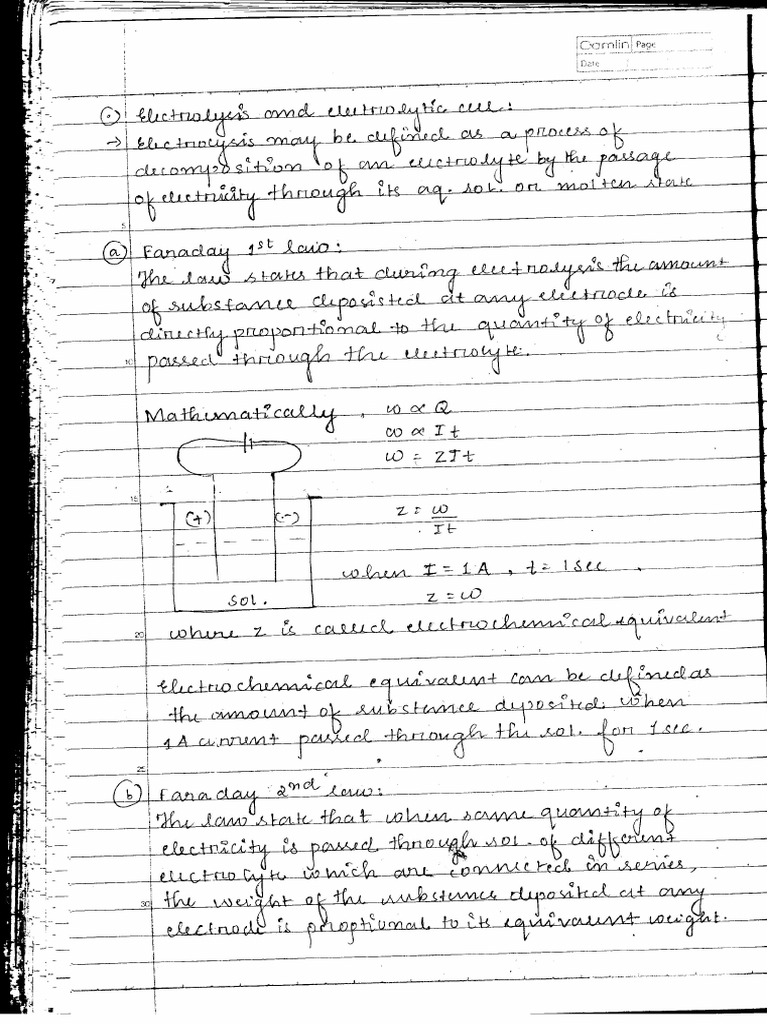 Camlin Page
Date
⊙ Electrolysis and electrolytic cell:
→ Electrolysis may be defined as a process of
decomposition of an electrolyte by the passage
of electricity through its aq. sol. or molten state
5
(a) Faraday 1st law:
The law states that during electrolysis the amount
of substance deposisted at any electrode is
directly proportional to the quantity of electricity
10 passed through the electrolyte.
Mathematically, w ∝ Q
w ∝ It
w = ZIt
15
(+) (-)
z = w
It
when I = 1A, t = 1sec
sol. z = w
20 where z is called electrochemical equivalent
Electrochemical equivalent can be defined as
the amount of substance deposited when
1A current passed through the sol. for 1sec.
25
(b) Faraday 2nd law:
The law state that when same quantity of
electricity is passed through sol. of different
electrolyte which are connected in series,
30 the weight of the substance deposited at any
electrode is proptional to its equivalent weight.